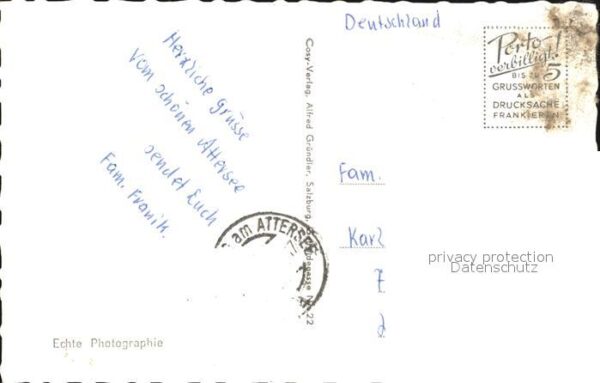 Deutschland
Porto
verbilligt!
BIS ZU 5
GRUSSWORTEN
ALS
DRUCKSACHE
FRANKIEREN
Herzliche Grüsse
vom schönen Attersee
sendet Euch
Fam.
Cosy-Verlag, Alfred Gründler, Salzburg,
22
am ATTERSEE
Fam.
Karl
privacy protection
Datenschutz
Echte Photographie